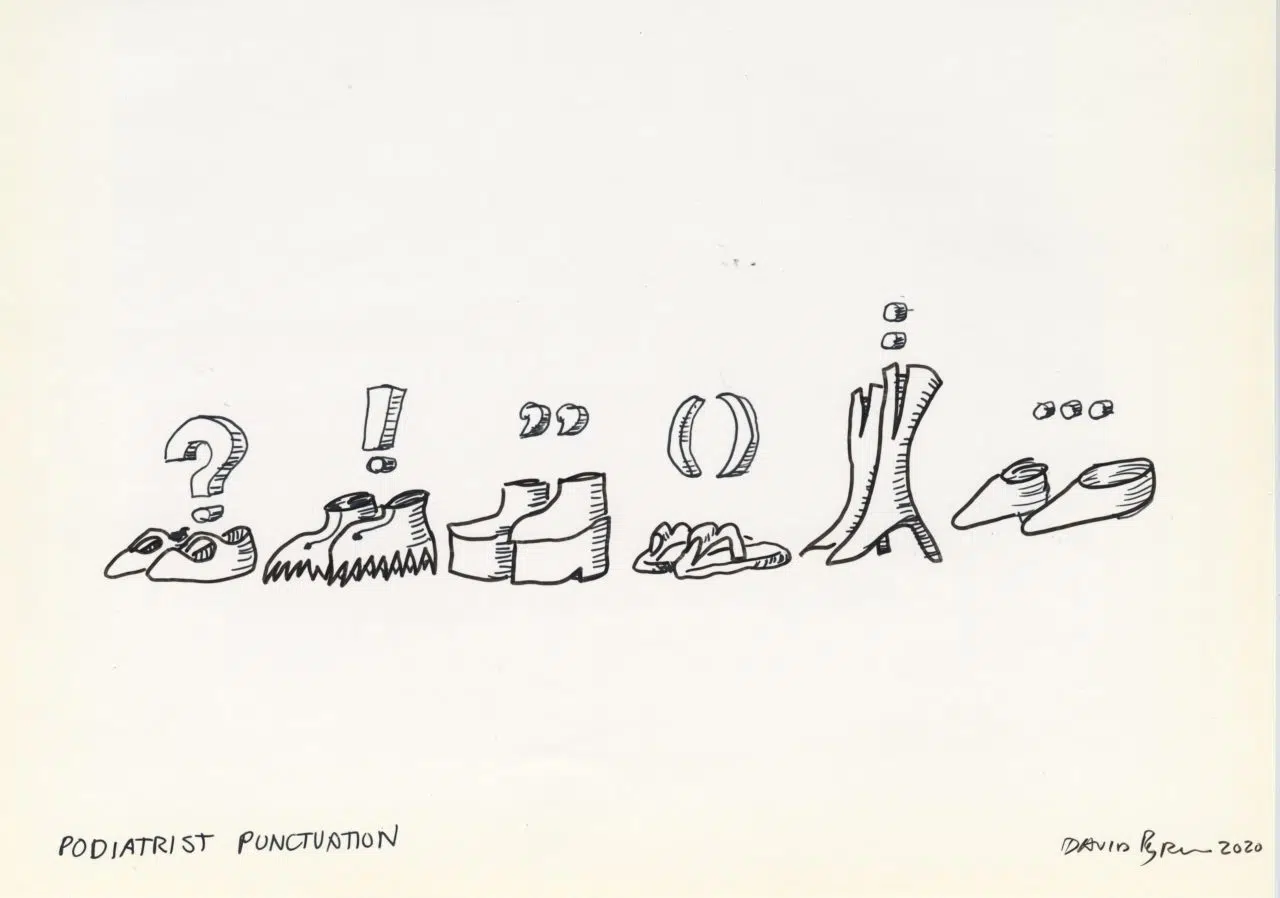 ? ! ” ( ) : ...
PODIATRIST PUNCTUATION
DAVID Byrne 2020